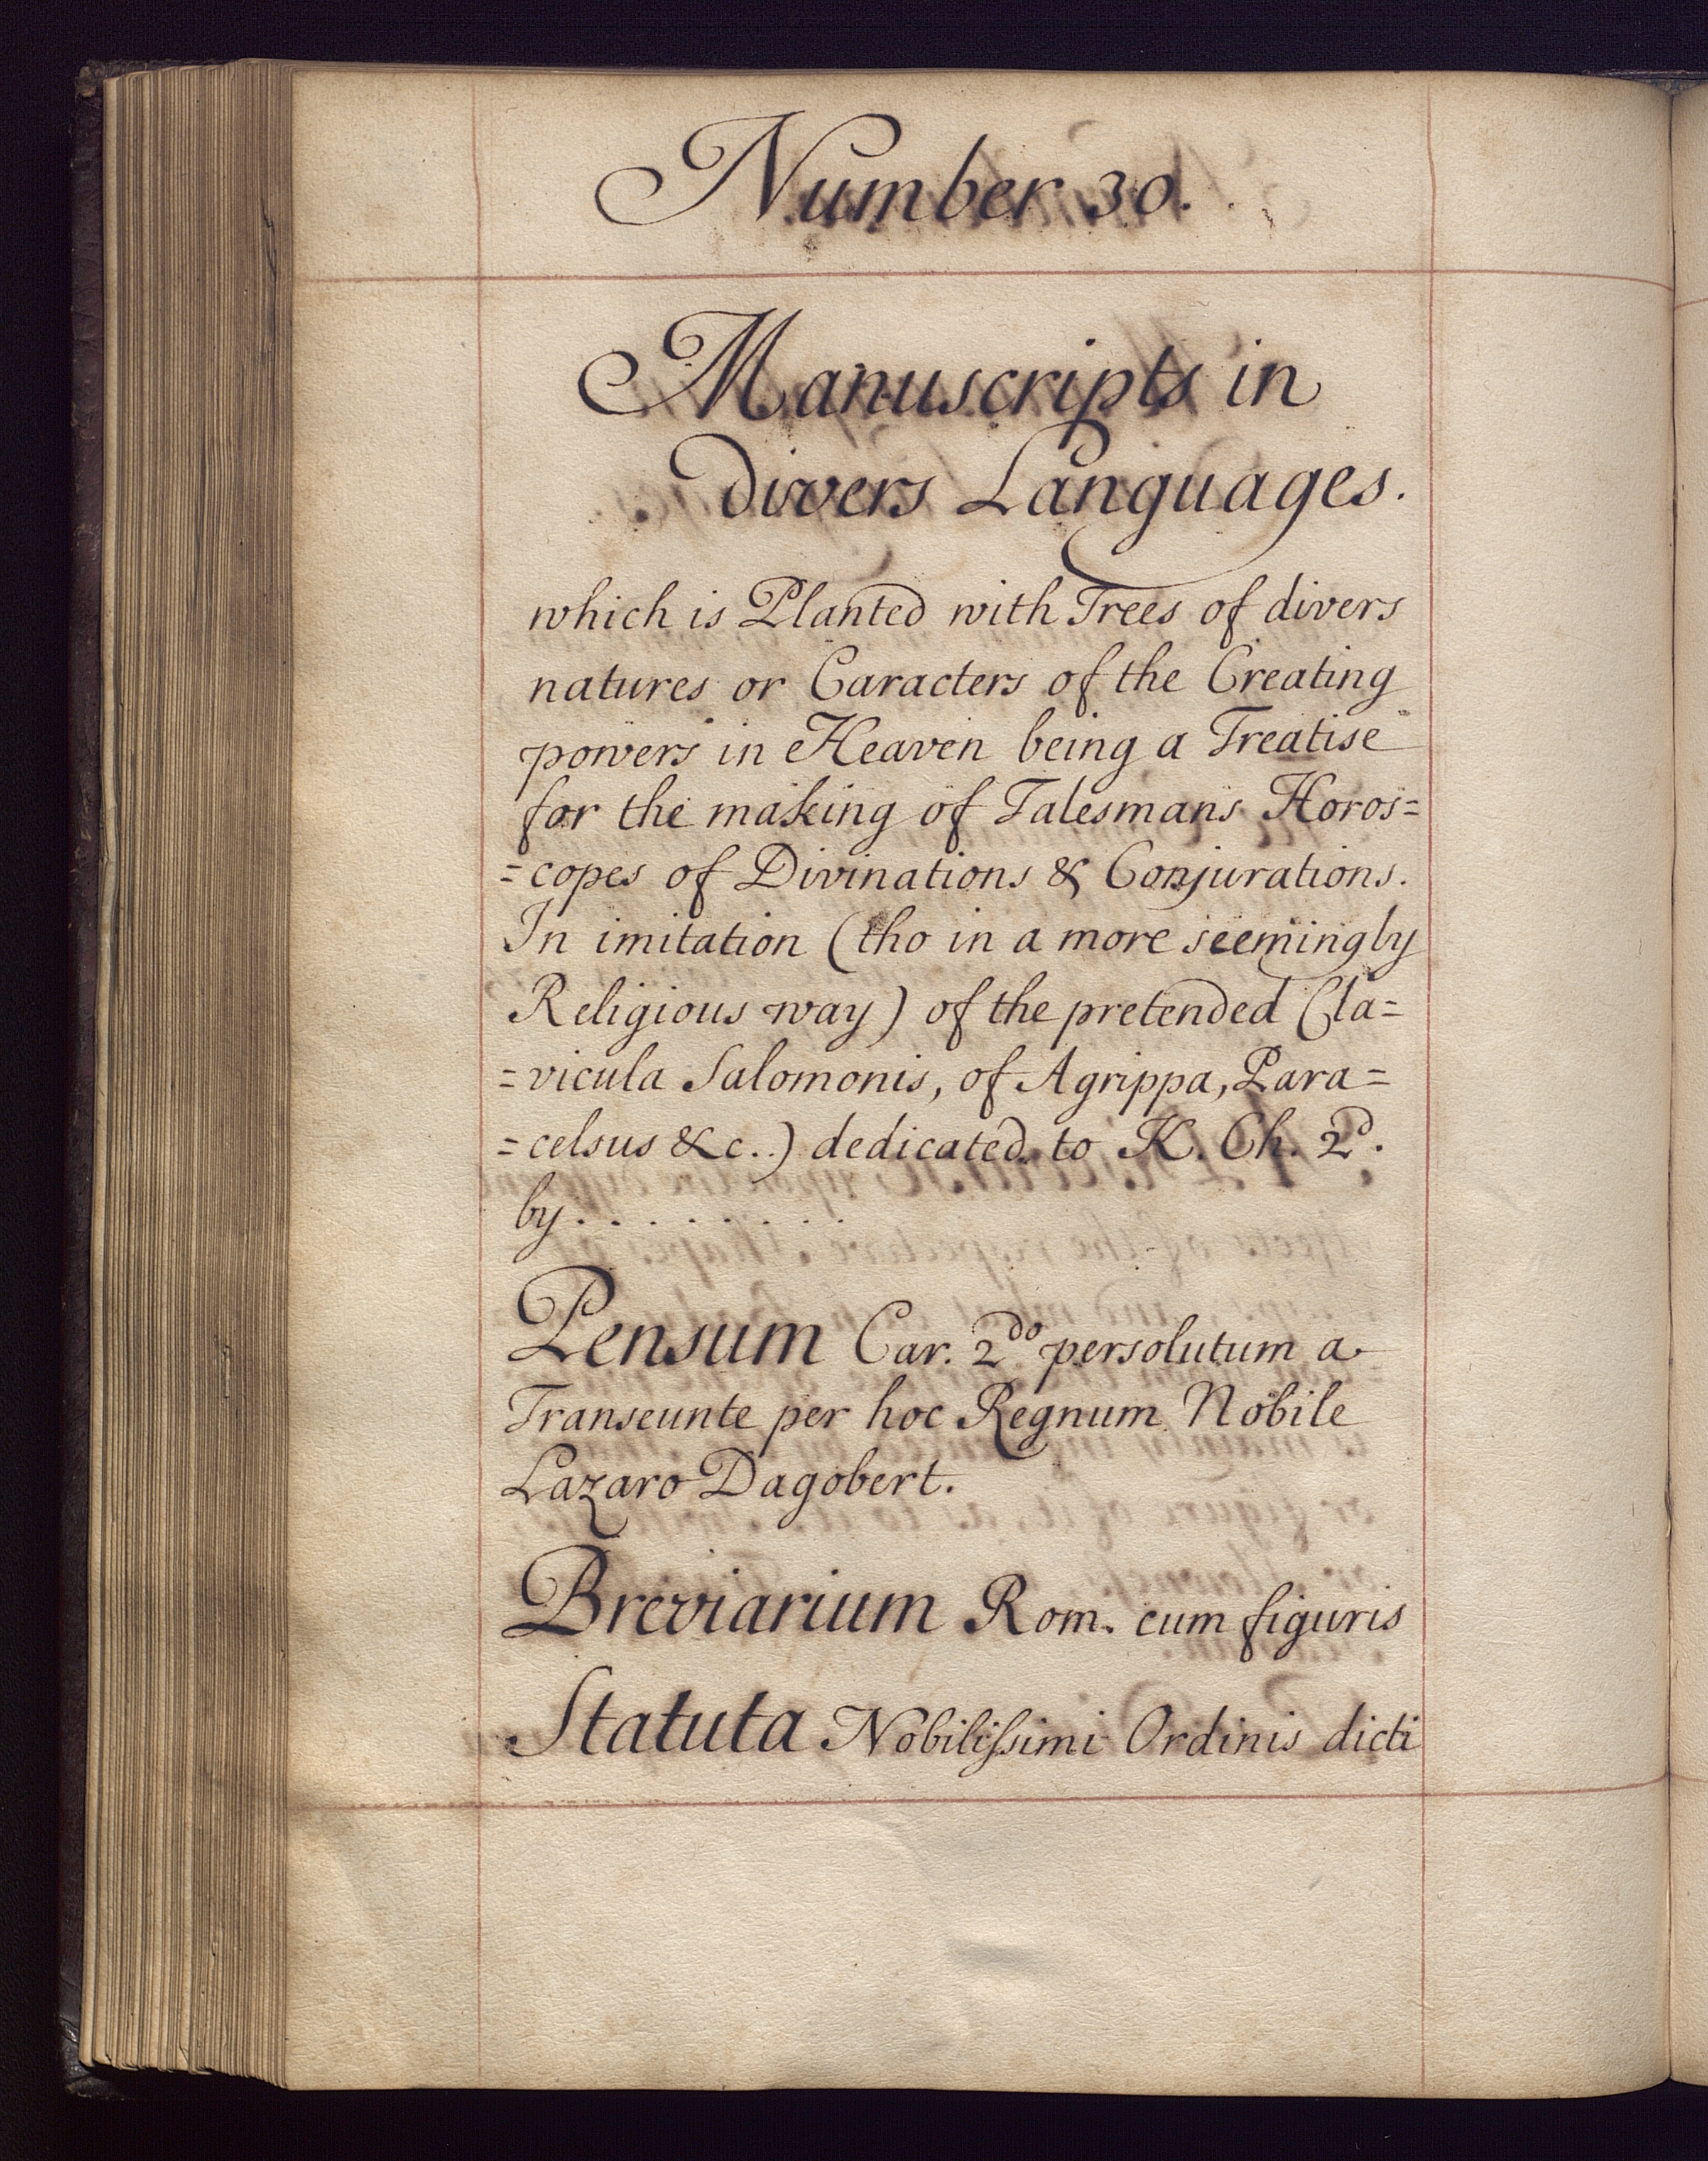 Number 30.
Manuscripts in
divers Languages.
which is Planted with Trees of divers
natures or Caracters of the Creating
powers in Heaven being a Treatise
for the making of Talesmans Horos=
=copes of Divinations & Conjurations.
In imitation (tho in a more seemingly
Religious way) of the pretended Cla=
=vicula Salomonis, of Agrippa, Para=
=celsus &c..) dedicated to K. Ch. 2d.
by. . . . . . . .
Pensum Car. 2do persolutum a
Transeunte per hoc Regnum Nobile
Lazaro Dagobert.
Breviarium Rom. cum figuris
Statuta Nobilissimi Ordinis dicti